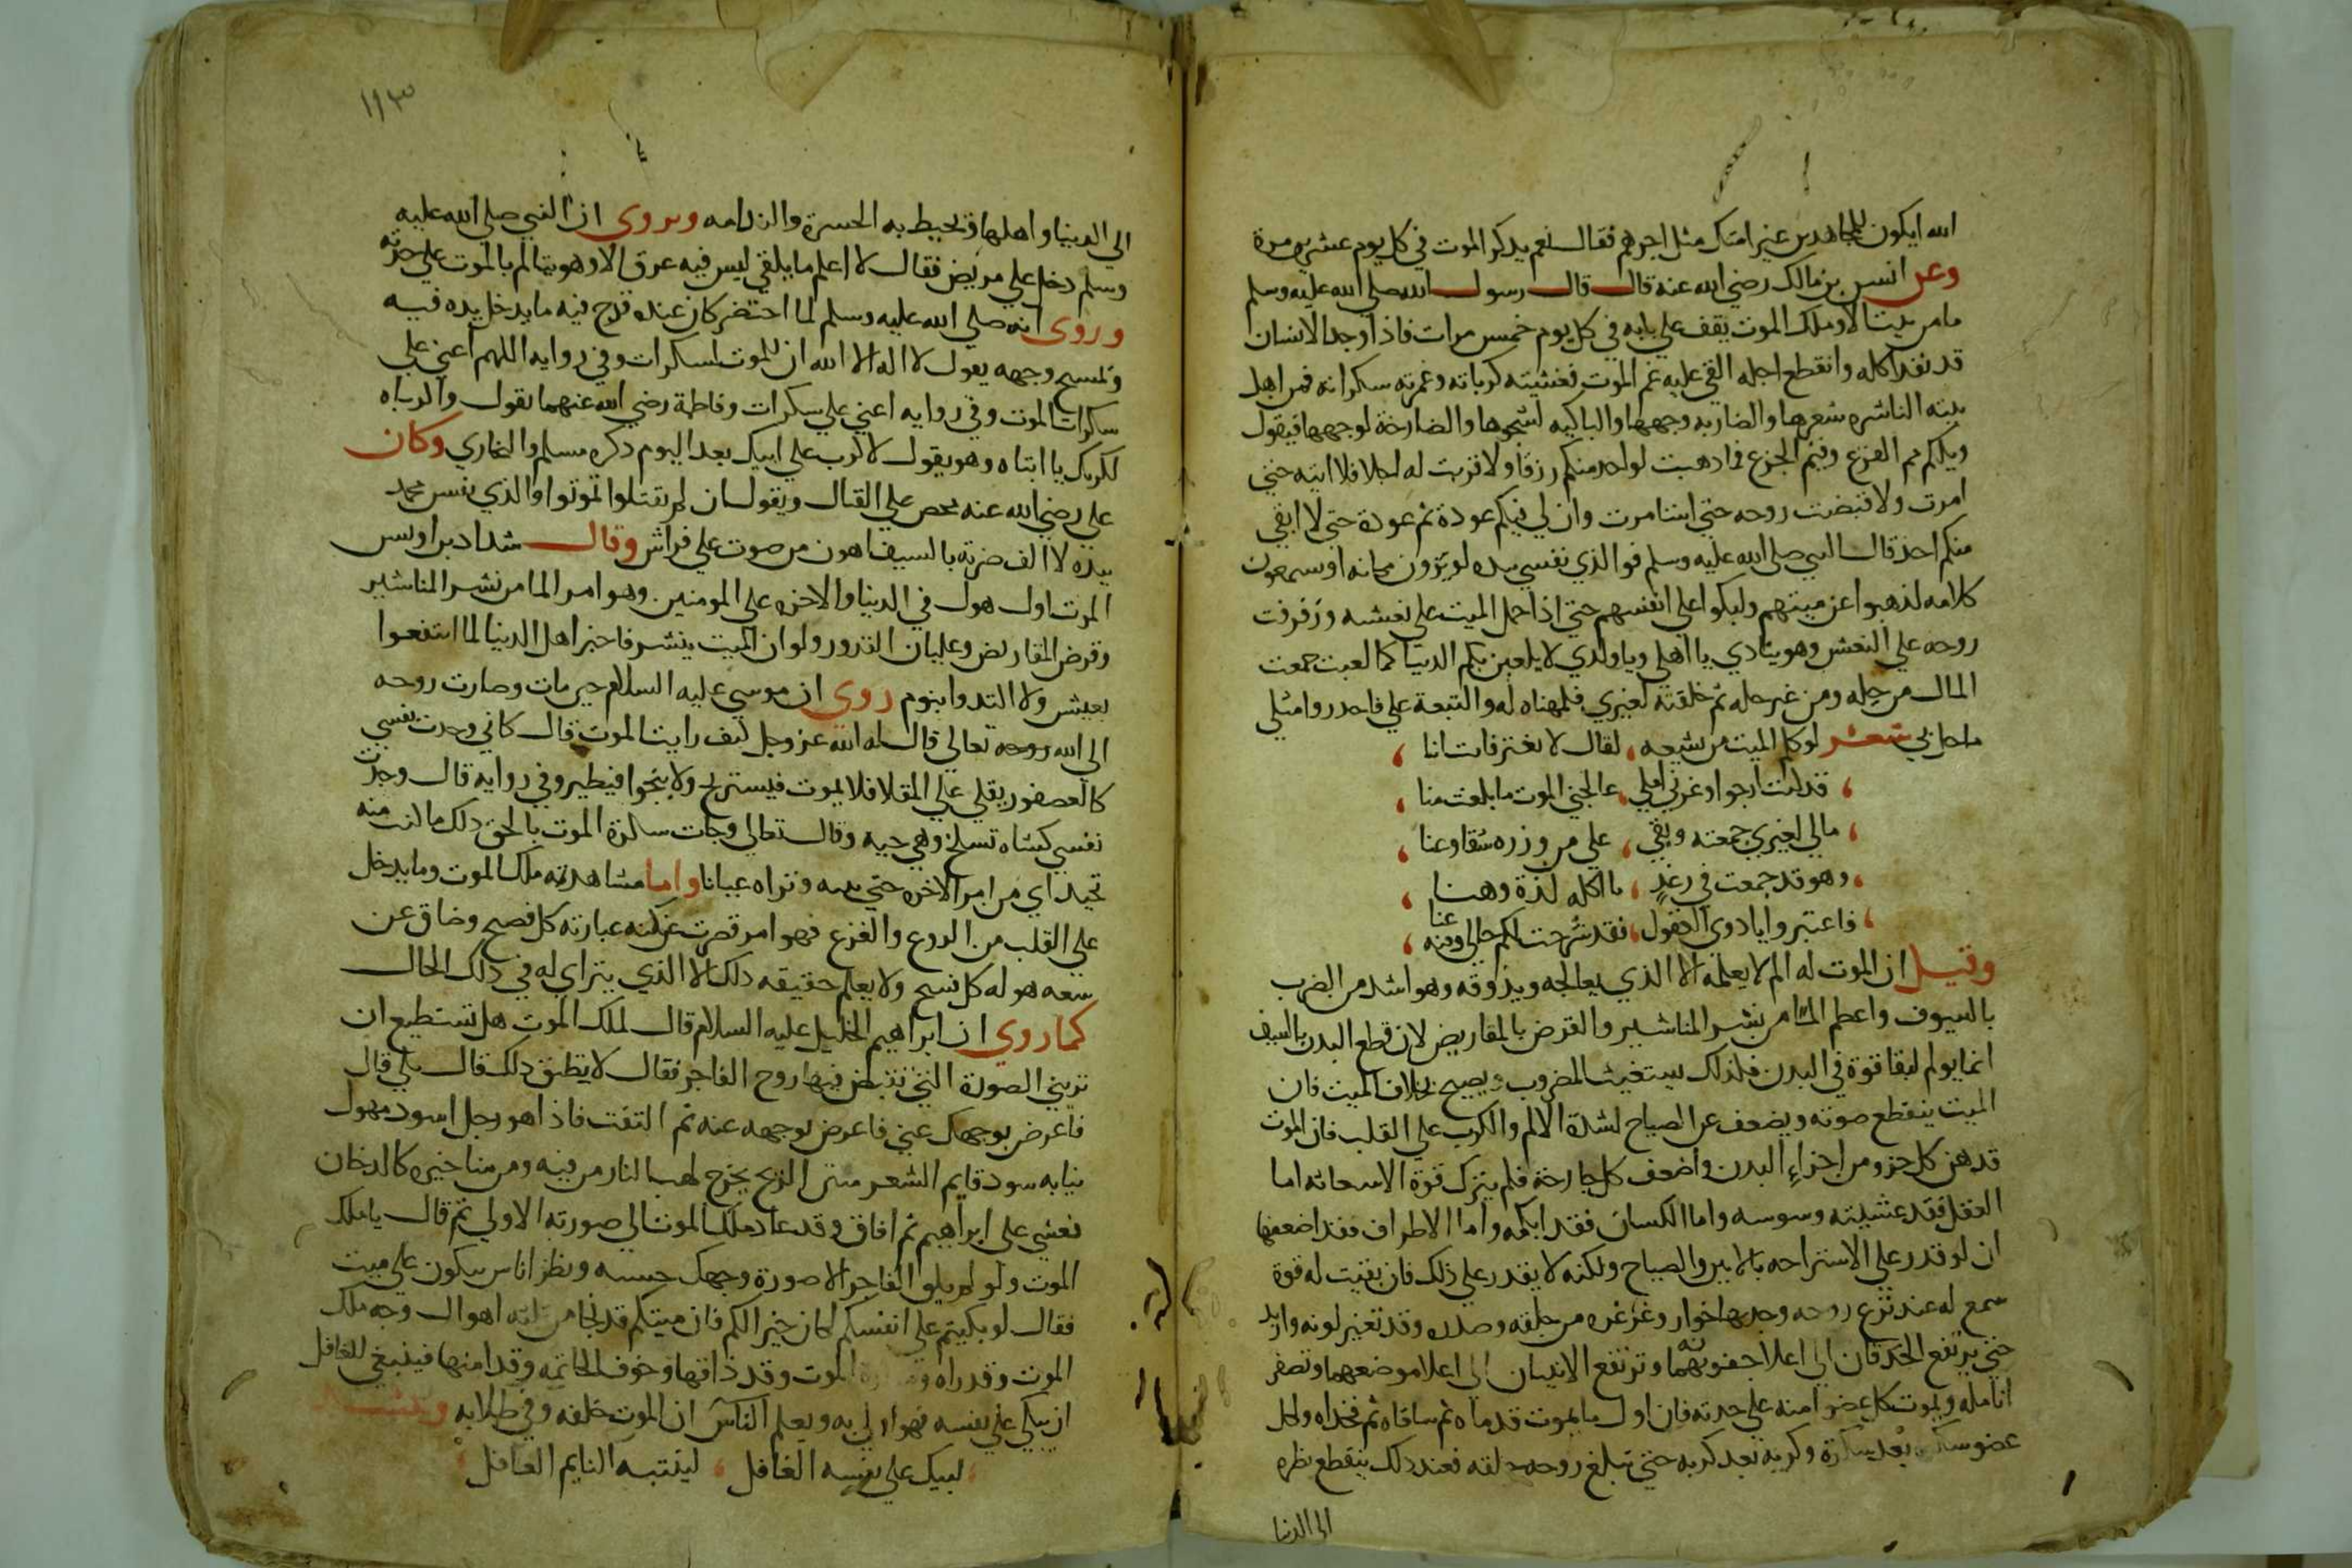 الله ايكون للمجاهدين غير امتك مثل اجرهم فقال نعم يدكر الموت في كل يوم عشرين مرة
وعن انس بن مالك رضي الله عنه قال قال رسول الله صلى الله عليه وسلم
ما من بيت الا وملك الموت يقف علي بابه في كل يوم خمس مرات فاذا وجد الانسان
قد نفد اكله وانقطع اجله القي عليه غم الموت فغشيته كرباته وغمرته سكراته فمن اهل
بيته الناشره شعرها والضاربه وجهها والباكيه لشجوها والصارخة لوجهها فيقول
ويلكم مم الفزع وفيم الجزع فما دهبت لواحد منكم رزقا ولا قربت له اجلا فلا اتيته حتي
امرت ولا قبضت روحه حتي استامرت وان لي فيكم عودة ثم عودة حتي لا ابقي
منكم احد قال النبي صلى الله عليه وسلم فوالذي نفسي بيده لو يرون مكانه او يسمعون
كلامه لذهبوا عن ميتهم ولبكوا علي انفسهم حتي اذا حمل الميت علي نعشه وزفرفت
روحه علي النعش وهو ينادي يا اهلي ويا ولدي لا يلعبن بكم الدنيا كما لعبت جمعت
المال من حله ومن غير حله ثم خلفته لغيري فلمهناه له والتبعة علي فاحدروا مثلي
ما حل بي شعر لو كلم الميت من يشيعه ، لقال لا يغتر فانت انا ،
، قد كنت ارجوا وغرني املي ، عالجني الموت ما بلغت منا ،
، مالي لغيري جمعته وبقي ، علي من وزره شقا وعنا ،
، وهو قد جمعت في رغد ، ما اكله لذة وهنا ،
، فاعتبروا يا دوي العقول ، فقد شرحت لكم حالي ومنه عنا ،
وقيل ان الموت له الم لا يعلمه الا الذي يعالجه ويذوقه وهو اشد من الضرب
بالسيوف واعظم الما من نشر المناشير والقرض بالمقاريض لان قطع البدن بالسيف
انما يولم لبقا قوة في البدن فلذلك يستغيث المضروب ويصيح بخلاف الميت فان
الميت ينقطع صوته ويضعف عن الصياح لشدة الالم والكرب علي القلب فان الموت
قد هد كل جزو من اجزاء البدن واضعف كل جارحة فلم يترك قوة الاستغاثه اما
العقل فقد غشيته وسوسه واما اللسان فقد ابكمه واما الاطراف فقد اضعفها
ان لو قدر علي الاستراحه بالانين والصياح ولكنه لا يقدر علي ذلك فان بقيت له قوة
سمع له عند نزع روحه وجدبها خوار وغرغره من حلقه وصدره وقد تغير لونه وازبد
حتي يرتفع الحدقتان الي اعلا جفونهما وترتفع الانثيان الي اعلا موضعهما وتصفر
انامله ويموت كل عضو منه علي حدته فان اول ما يموت قدماه ثم ساقاه ثم فخداه ولكل
عضو سكرة بعد سكرة وكربه بعد كربه حتي تبلغ روحه حلقه فعند دلك ينقطع نظره
الي الدنيا
١١٣
الي الدنيا واهلها وتحيط به الحسرة والندامه ويروي ان النبي صلى الله عليه
وسلم دخل علي مريض فقال لا اعلم ما يلقي ليس فيه عرق الا وهو يتالم بالموت علي حدته
وروي انه صلى الله عليه وسلم لما احتضر كان عنده قدح فيه ما يدخل يده فيه
ويمسح وجهه يقول لا اله الا الله ان للموت لسكرات وفي روايه اللهم اعني علي
سكرات الموت وفي روايه اعني علي سكرات وفاطمة رضي الله عنهما تقول واكرباه
لكربك يا ابتاه وهو يقول لا كرب علي ابيك بعد اليوم دكره مسلم والبخاري وكان
علي رضي الله عنه يحض علي القتال ويقول ان لم تقتلوا تموتوا والذي نفس محمد
بيده لالف ضربة بالسيف اهون من موت علي فراش وقال شداد بن اوس
الموت اول هول في الدنيا والاخره علي المومنين وهو امر الما من نشر المناشير
وقرض المقاريض وغليان القدور ولو ان الميت ينشر فاخبر اهل الدنيا لما انتفعوا
بعيش ولا التدوا بنوم روي ان موسي عليه السلام حين مات وصارت روحه
الي الله روحه تعالي قال له الله عز وجل كيف رايت الموت قال كاني وجدت نفسي
كالعصفور يقلي علي المقلا فلا يموت فيستريح ولا ينجوا فيطير وفي روايه قال وجدت
نفسي كشاه تسلخ وهي حيه وقال تعالي وجات سكرة الموت بالحق دلك ما كنت منه
تحيد اي من امر الاخره حتي وتراه عيانا واما مشاهدته ملك الموت وما يدخل
علي القلب من الروع والفزع فهو امر قصرت عن كنه عبارته كل فصيح وضاق عن
هوله كل ولا يعلم حقيقه دلك الا الذي يتراي له في دلك الحال
كما روي ان ابراهيم الخليل عليه السلام قال لملك الموت هل تستطيع ان
تريني الصورة التي تقبض فيها روح الفاجر فقال لا يطيق دلك قال بلي قال
فاعرض بوجهك عني فاعرض بوجهه عنه ثم التفت فاذا هو رجل اسود مهول
ثيابه سود قايم الشعر منتن الريح يخرج لهب النار من فيه ومن مناخيره كالدخان
فغشي علي ابراهيم ثم افاق وقد عاد ملك الموت الي صورته الاولي ثم قال يا ملك
الموت ولو لم يلق الفاجر الا صورة وجهك حسبه ونظر اناس يبكون علي ميت
فقال لو بكيتم علي انفسكم لكان خير الكم فان ميتكم قد نجا من اهوال وجه ملك
الموت وقد راه الموت وقد ذاقها وخوف الخاتمه وقد امنها فينبغي للغافل
ان يبكي علي نفسه فهو اولي به ويعلم الناس ان الموت خلفه وفي طلابه
، ليبك علي نفسه الغافل ، لينتبه النايم الغافل